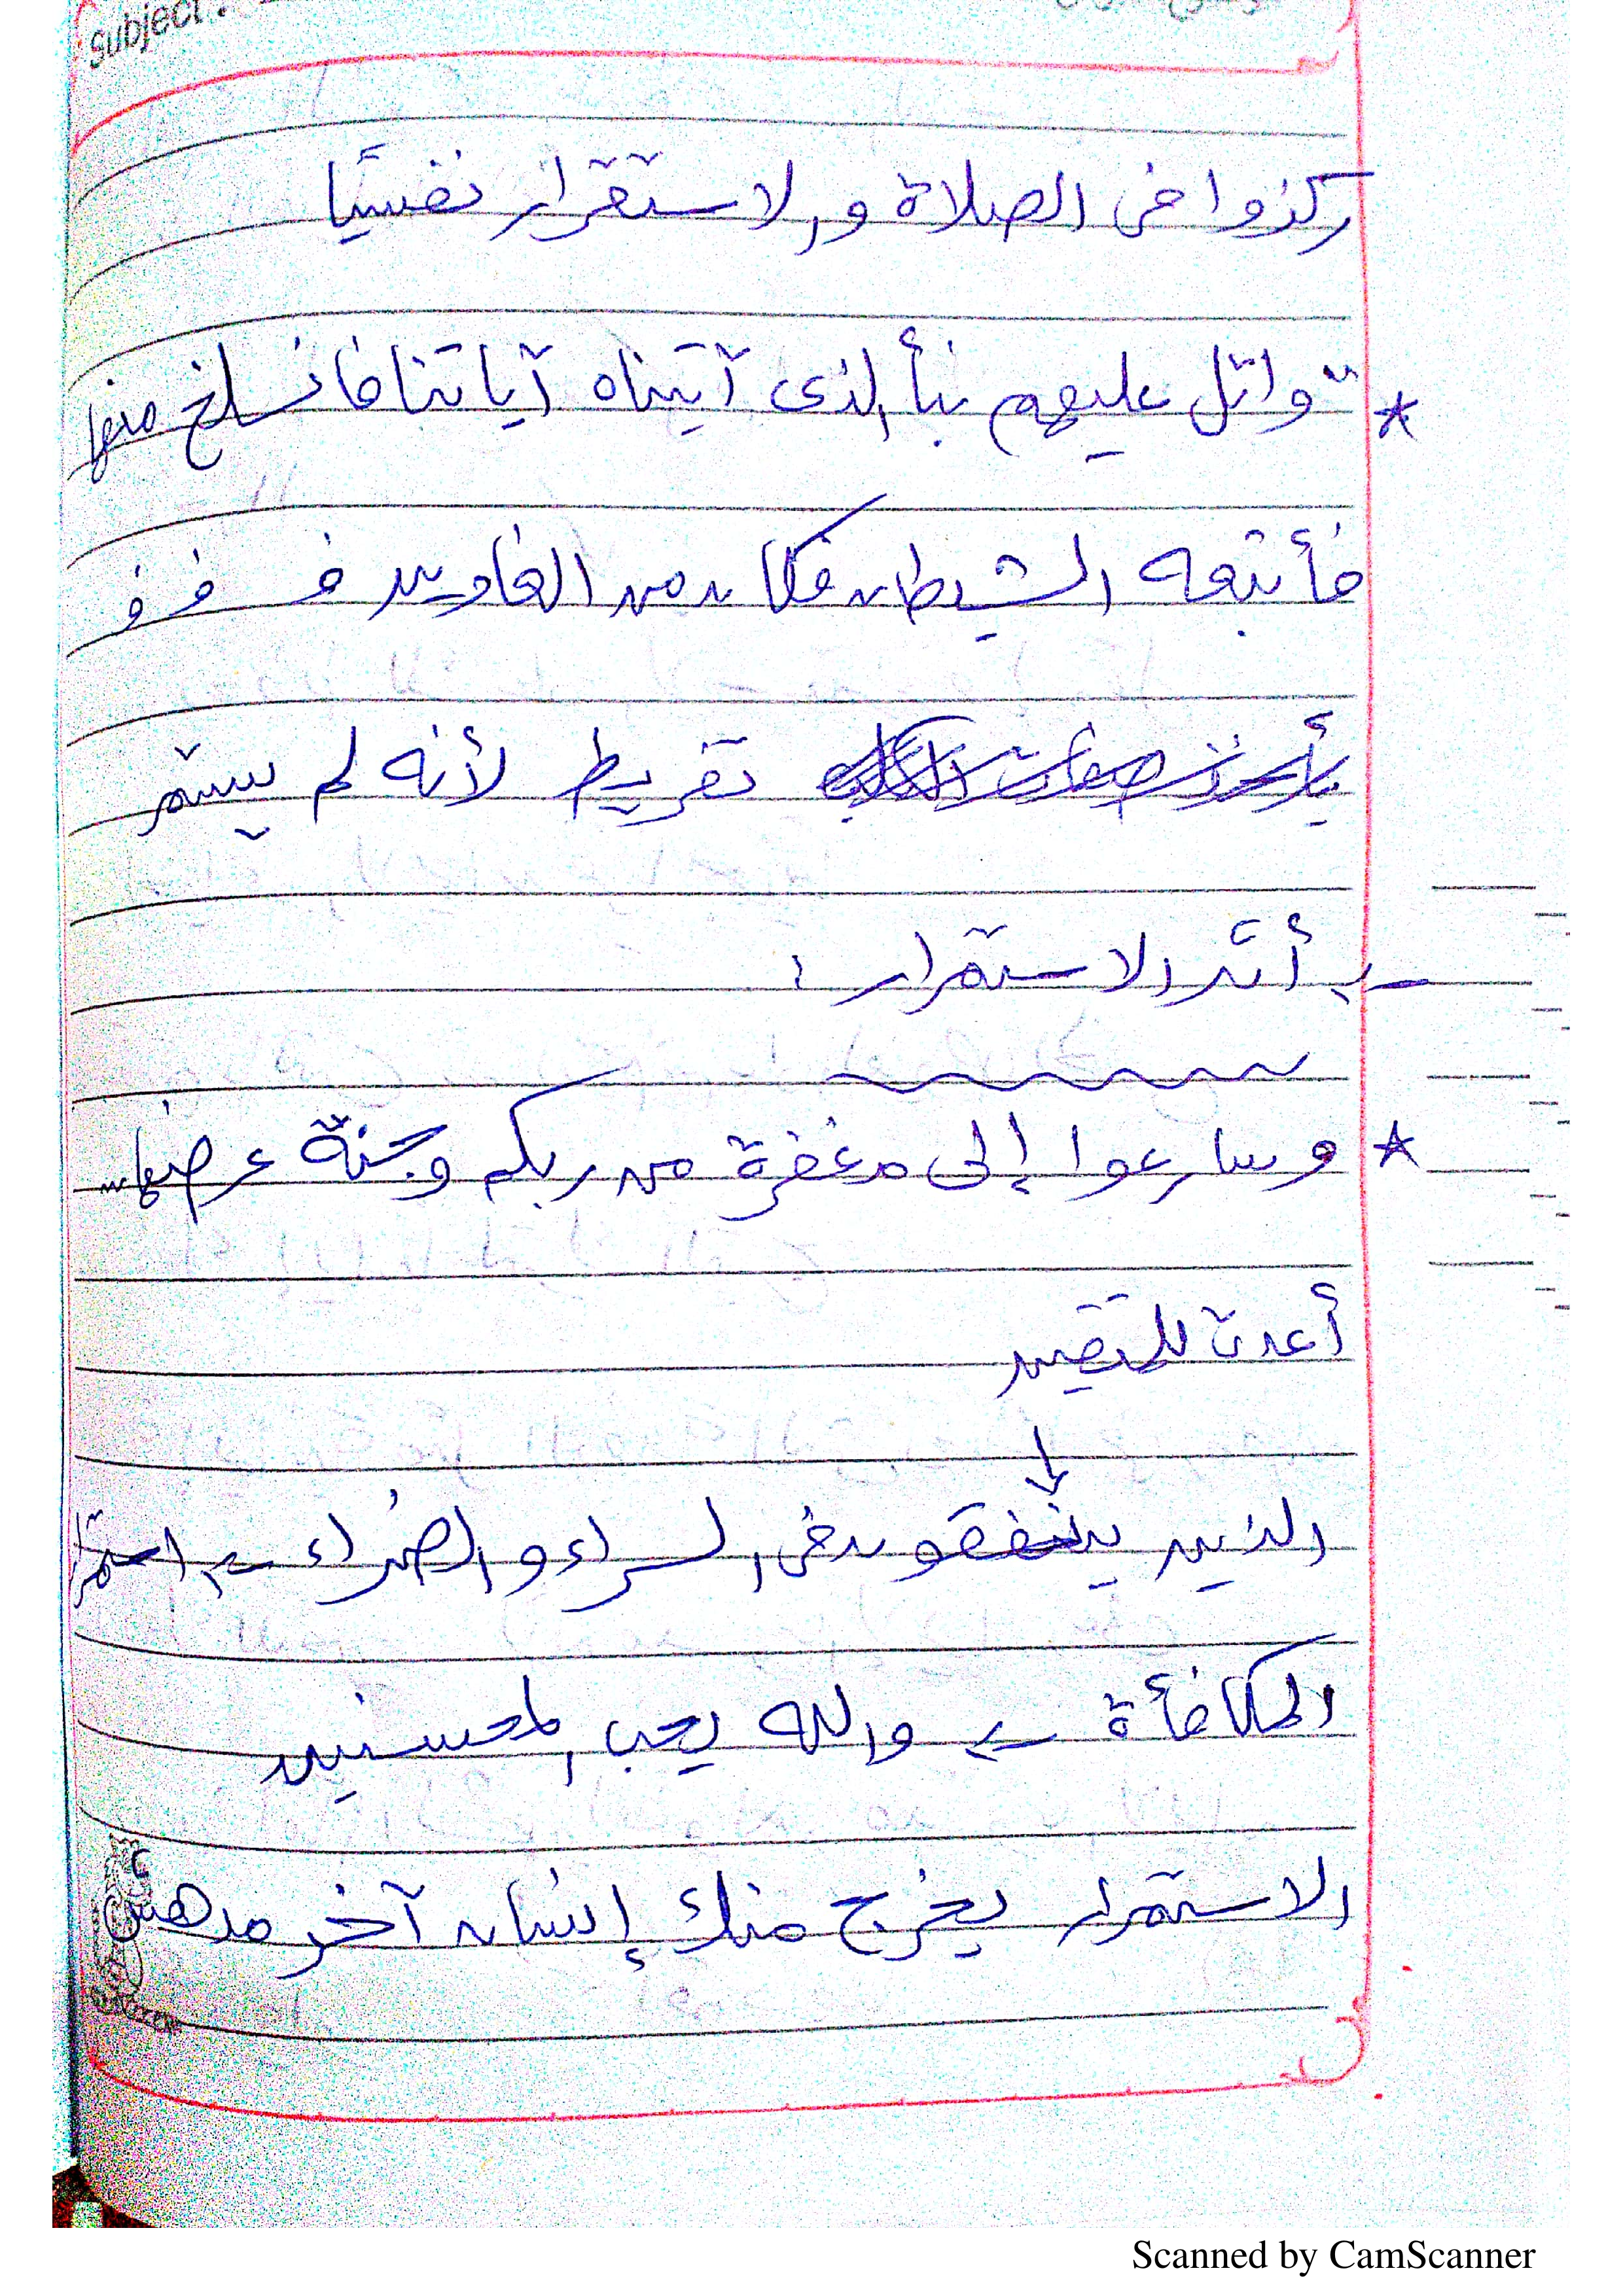 Subject:
ركزوا فى الصلاة والاستقرار نفسيًا
* " واتل عليهم نبأ الذى آتيناه آياتنا فانسلخ منها
فأتبعه الشيطان فكان من الغاوين ف ف ف
تفريط لأنه لم يستمر
← أثر الاستمرار :
* وسارعوا إلى مغفرة من ربكم وجنة عرضها ...
أعدت للمتقين
↓
الذين ينفقون فى السراء والضراء ← استمرار
المكافأة ← والله يحب المحسنين
الاستمرار يخرج منك إنسان آخر مدهش
Scanned by CamScanner